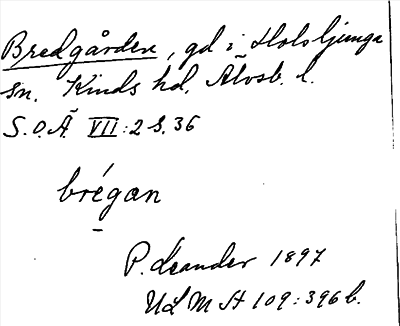 Bredgården, gd i Holsljunga
sn. Kinds hd. Älvsb. l.
S.O.Ä. VII:2 S. 36
brégan
P. Leander 1897
ULMA 109:396 b.